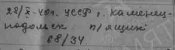 28/X-40г. УССР, г. Каменец-
подольск п/ящик
68/34